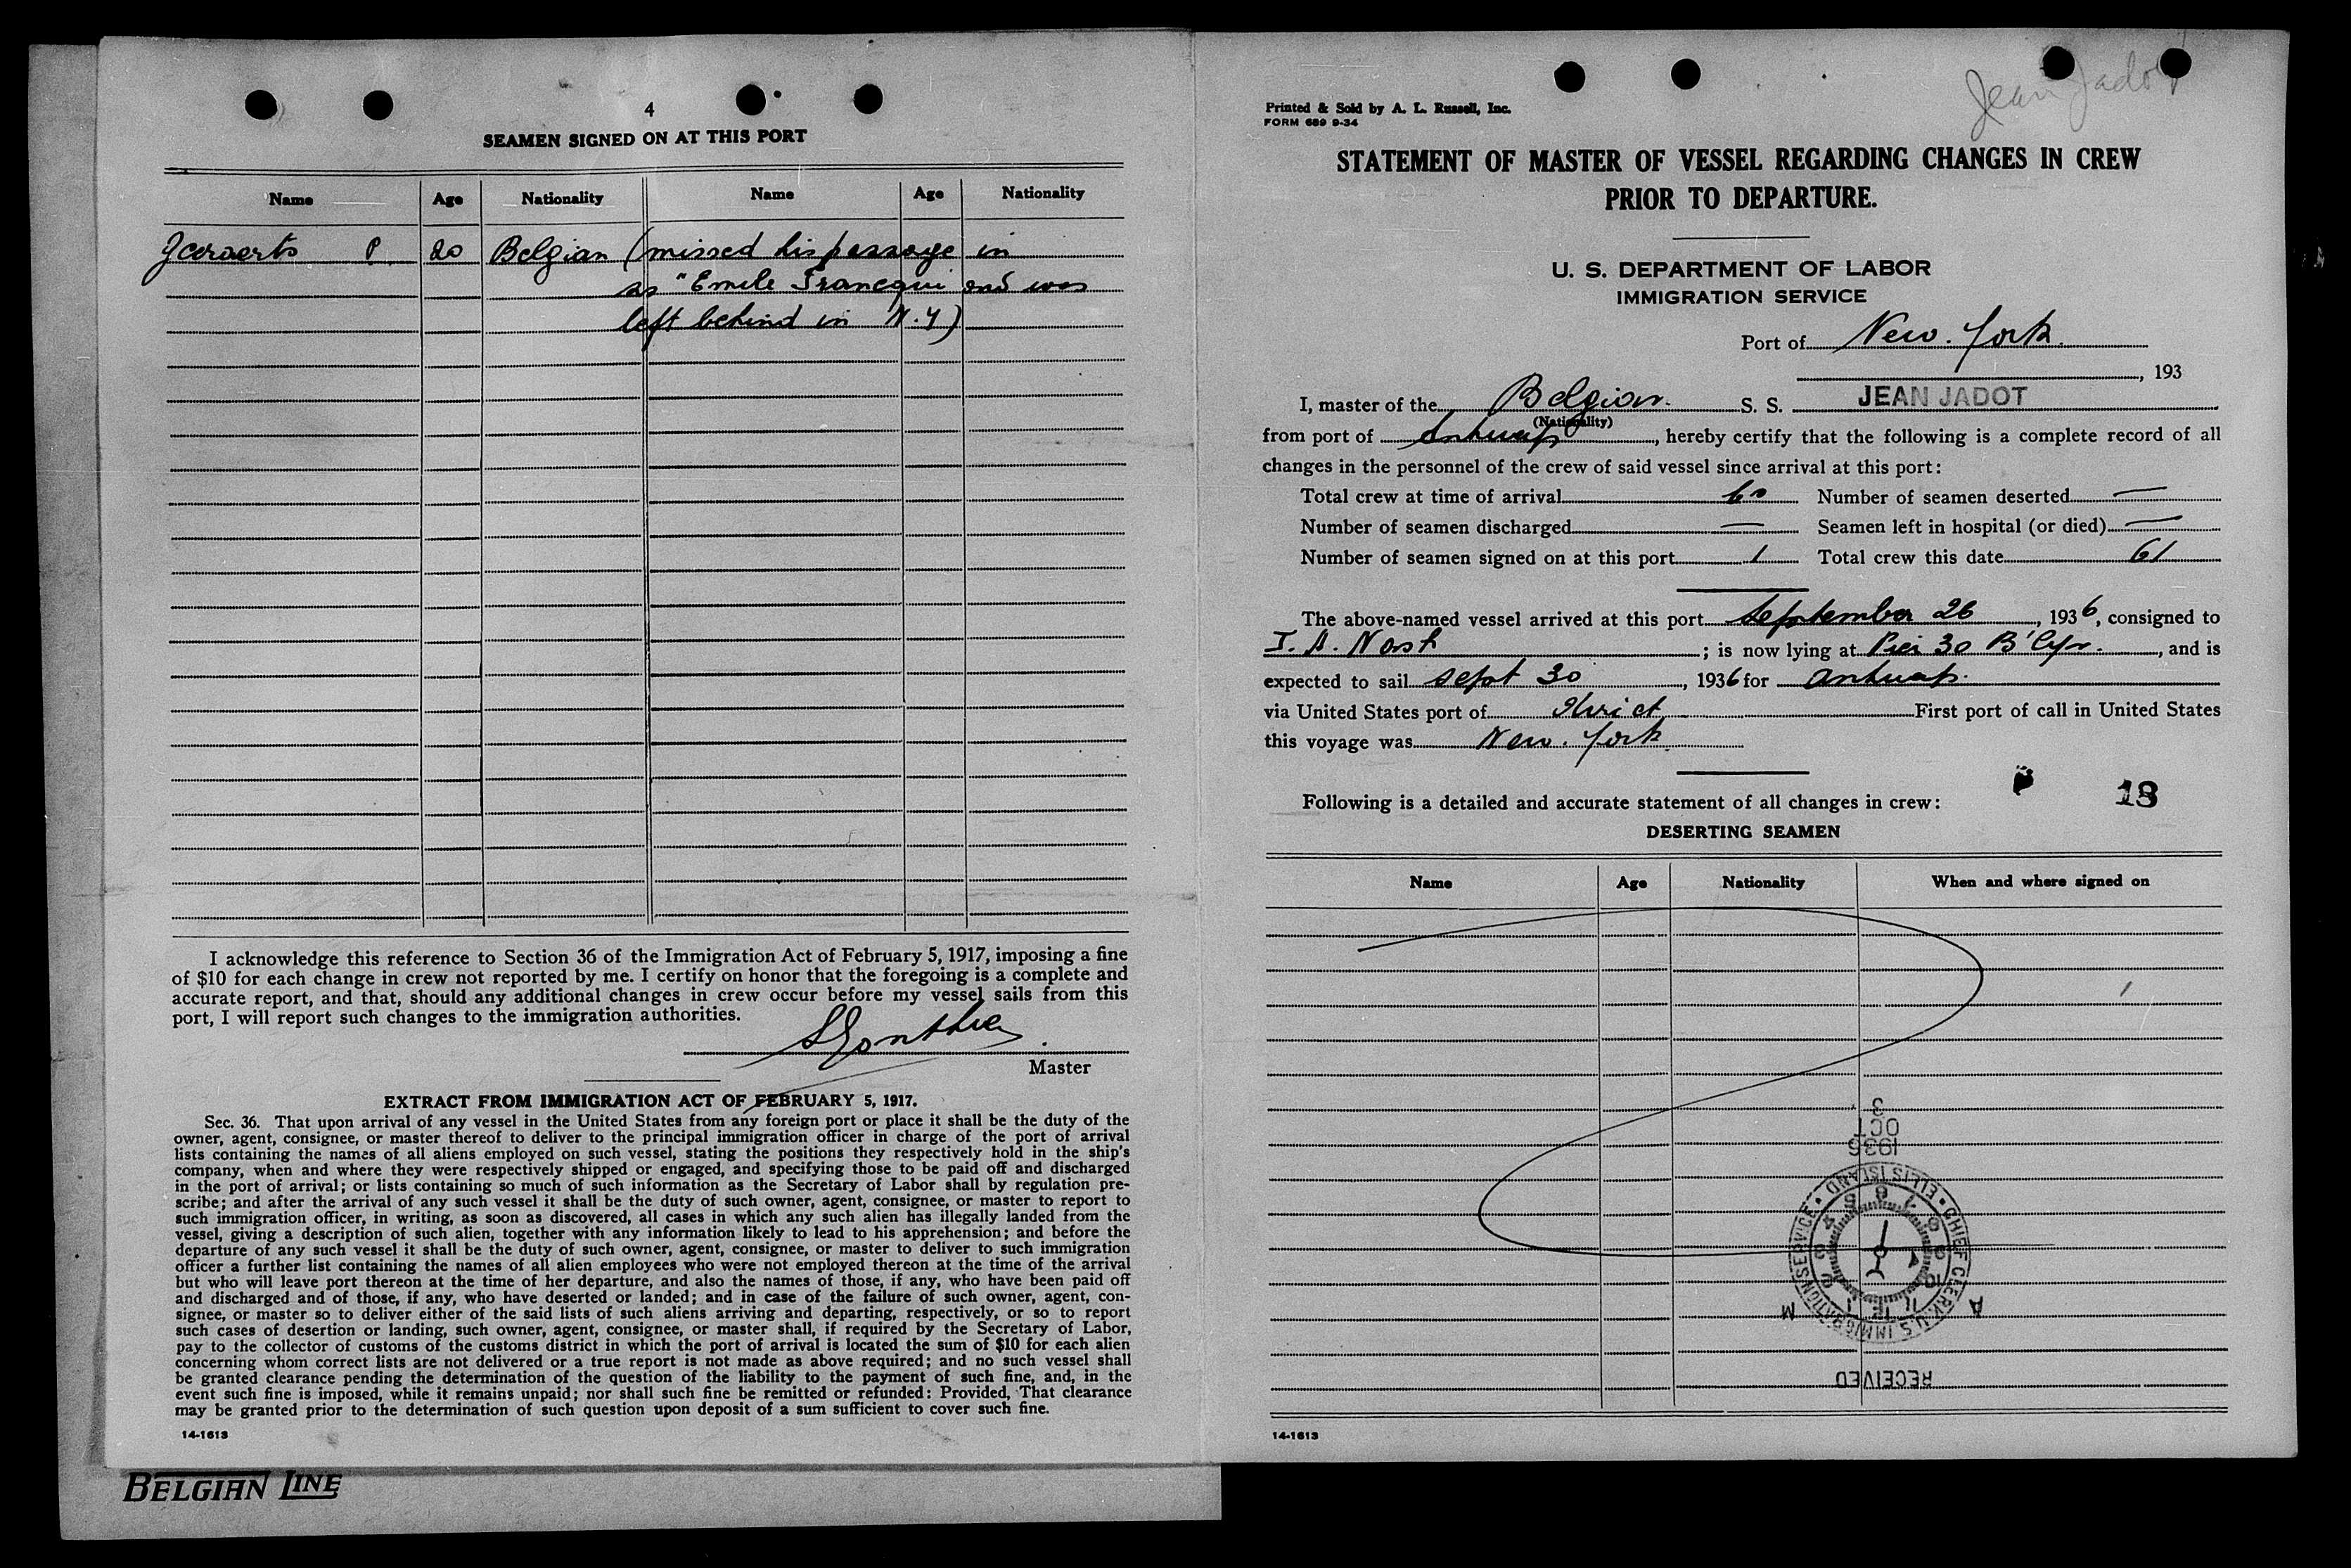 4
SEAMEN SIGNED ON AT THIS PORT
Name Age Nationality Name Age Nationality
P. 20 Belgian (missed his passage in
ss "Emile Francqui and was
left behind in N.Y)
I acknowledge this reference to Section 36 of the Immigration Act of February 5, 1917, imposing a fine
of $10 for each change in crew not reported by me. I certify on honor that the foregoing is a complete and
accurate report, and that, should any additional changes in crew occur before my vessel sails from this
port, I will report such changes to the immigration authorities.
Master
EXTRACT FROM IMMIGRATION ACT OF FEBRUARY 5, 1917.
Sec. 36. That upon arrival of any vessel in the United States from any foreign port or place it shall be the duty of the
owner, agent, consignee, or master thereof to deliver to the principal immigration officer in charge of the port of arrival
lists containing the names of all aliens employed on such vessel, stating the positions they respectively hold in the ship's
company, when and where they were respectively shipped or engaged, and specifying those to be paid off and discharged
in the port of arrival; or lists containing so much of such information as the Secretary of Labor shall by regulation pre-
scribe; and after the arrival of any such vessel it shall be the duty of such owner, agent, consignee, or master to report to
such immigration officer, in writing, as soon as discovered, all cases in which any such alien has illegally landed from the
vessel, giving a description of such alien, together with any information likely to lead to his apprehension; and before the
departure of any such vessel it shall be the duty of such owner, agent, consignee, or master to deliver to such immigration
officer a further list containing the names of all alien employees who were not employed thereon at the time of the arrival
but who will leave port thereon at the time of her departure, and also the names of those, if any, who have been paid off
and discharged and of those, if any, who have deserted or landed; and in case of the failure of such owner, agent, con-
signee, or master so to deliver either of the said lists of such aliens arriving and departing, respectively, or so to report
such cases of desertion or landing, such owner, agent, consignee, or master shall, if required by the Secretary of Labor,
pay to the collector of customs of the customs district in which the port of arrival is located the sum of $10 for each alien
concerning whom correct lists are not delivered or a true report is not made as above required; and no such vessel shall
be granted clearance pending the determination of the question of the liability to the payment of such fine, and, in the
event such fine is imposed, while it remains unpaid; nor shall such fine be remitted or refunded: Provided, That clearance
may be granted prior to the determination of such question upon deposit of a sum sufficient to cover such fine.
14-1613
BELGIAN LINE
Jean Jadot
Printed & Sold by A. L. Russell, Inc.
FORM 689 9-34
STATEMENT OF MASTER OF VESSEL REGARDING CHANGES IN CREW
PRIOR TO DEPARTURE.
U. S. DEPARTMENT OF LABOR
IMMIGRATION SERVICE
Port of New. York.
, 193
I, master of the Belgian. S. S. JEAN JADOT
(Nationality)
from port of Antwerp, hereby certify that the following is a complete record of all
changes in the personnel of the crew of said vessel since arrival at this port:
Total crew at time of arrival 60 Number of seamen deserted —
Number of seamen discharged — Seamen left in hospital (or died) —
Number of seamen signed on at this port 1 Total crew this date 61
The above-named vessel arrived at this port September 26, 1936, consigned to
; is now lying at Pier 30 B'lyn., and is
expected to sail Sept 30, 1936 for Antwerp.
via United States port of direct First port of call in United States
this voyage was New. York.
18
Following is a detailed and accurate statement of all changes in crew:
DESERTING SEAMEN
Name Age Nationality When and where signed on
3
OCT
1936
CHIEF CLERK U.S IMMIGRATION SERVICE • ELLIS ISLAND •
A M
RECEIVED
14-1613